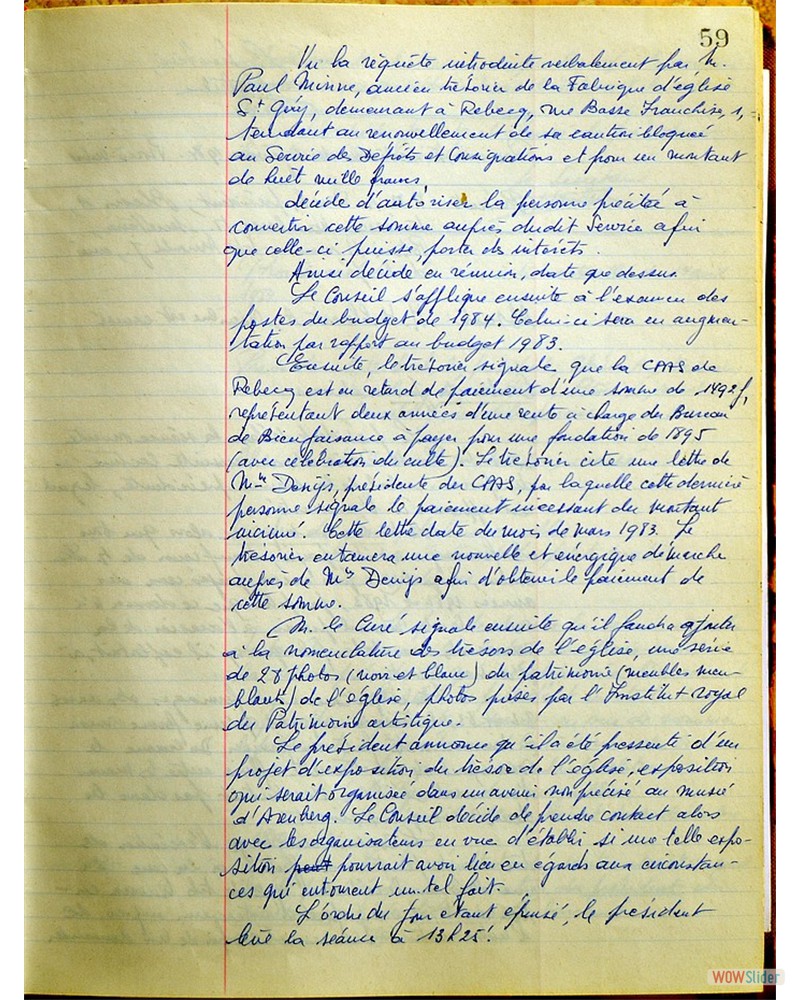 59
Vu la requête introduite verbalement par M.
Paul Minne, ancien trésorier de la Fabrique d'église
St Géry, demeurant à Rebecq, rue Basse Franchise, 1,
tendant au renouvellement de sa caution bloquée
au Service des Dépôts et Consignations et pour un montant
de huit mille francs,
décide d'autoriser la personne précitée à
convertir cette somme auprès dudit Service afin
que celle-ci puisse porter des intérêts.
Ainsi décidé en réunion, date que dessus.
Le Conseil s'applique ensuite à l'examen des
postes du budget de 1984. Celui-ci sera en augmen-
tation par rapport au budget 1983.
Ensuite, le trésorier signale que la CPAS de
Rebecq est en retard de paiement d'une somme de 1492 f,
représentant deux années d'une rente à charge du Bureau
de Bienfaisance à payer pour une fondation de 1895
(avec célébration du culte). Le trésorier cite une lettre de
Mme Denijs, présidente du CPAS, par laquelle cette dernière
personne signale le paiement incessant du montant
incriminé. Cette lettre date du mois de mars 1983. Le
trésorier entamera une nouvelle et énergique démarche
auprès de Mme Denijs afin d'obtenir le paiement de
cette somme.
M. le Curé signale ensuite qu'il faudra ajouter
à la nomenclature des trésors de l'église, une série
de 28 photos (noir et blanc) du patrimoine (meubles meu-
blants) de l'église, photos prises par l'Institut royal
du Patrimoine artistique.
Le président annonce qu'il a été pressenti d'un
projet d'exposition du trésor de l'église, exposition
qui serait organisée dans un avenir non précisé au musée
d'Arenberg. Le Conseil décide de prendre contact alors
avec les organisateurs en vue d'établir si une telle expo-
sition peut pourrait avoir lieu en égards aux circonstan-
ces qui entourent un tel fait.
L'ordre du jour étant épuisé, le président
lève la séance à 13h25'.
WOWSlider